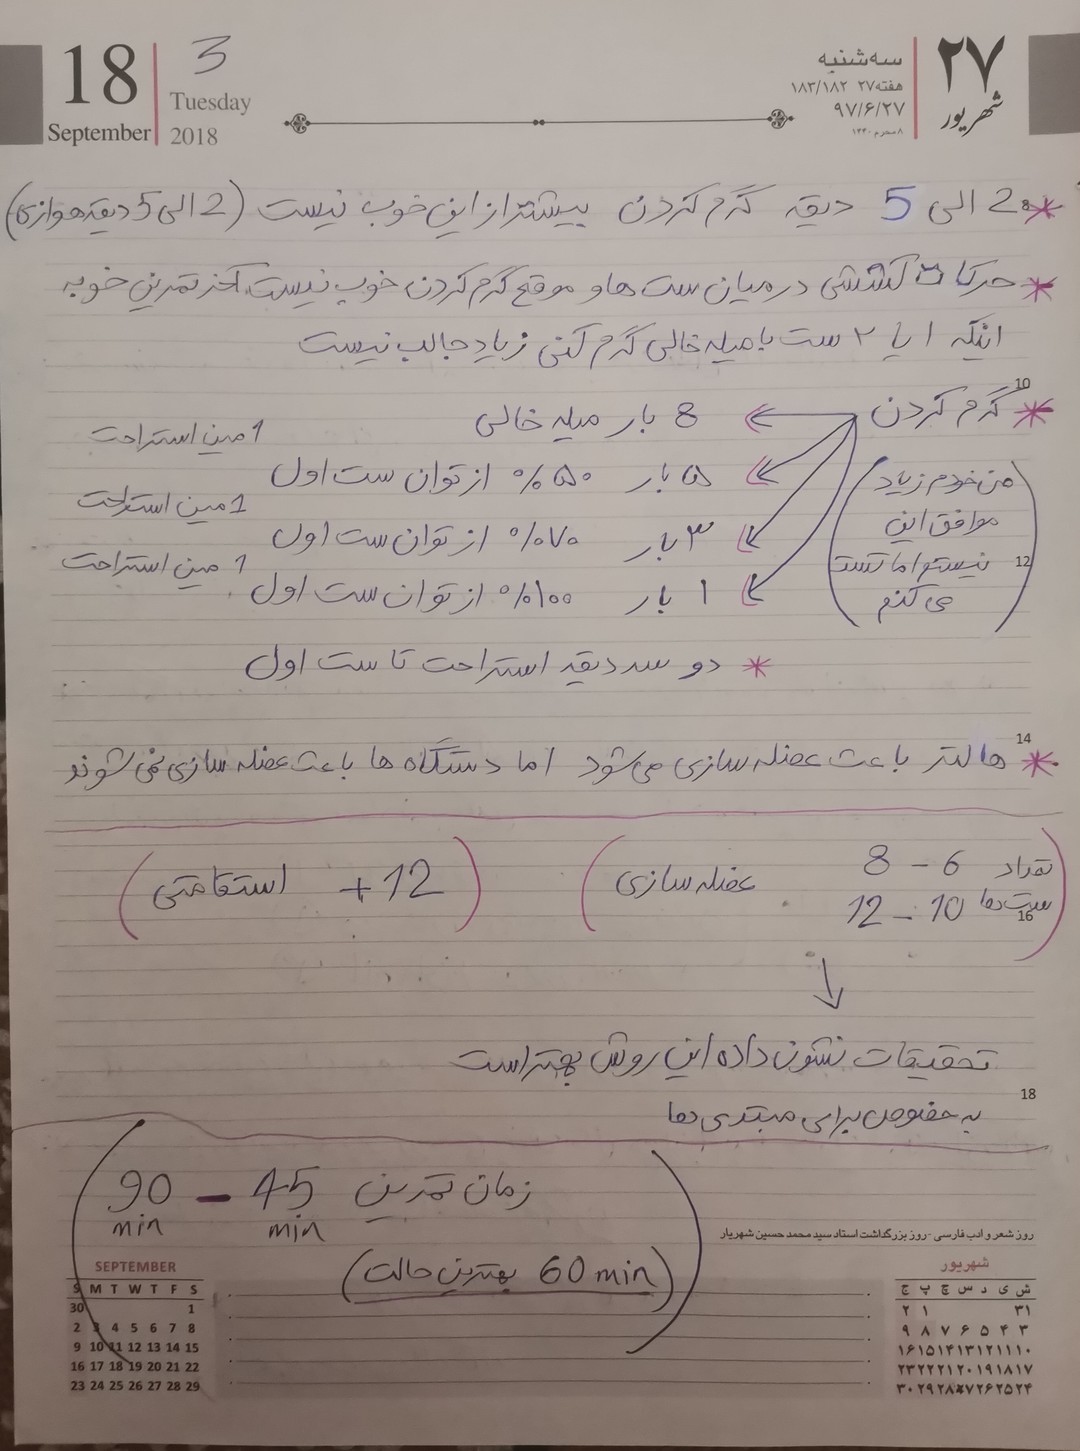 18
September
3
Tuesday
2018
سه‌شنبه
هفته ۲۷ ۱۸۳/۱۸۲
۹۷/۶/۲۷
۸ محرم ۱۴۴۰
۲۷
شهریور
* 2 الی 5 دیقه گرم کردن بیشتر از این خوب نیست (2 الی 5 دیقه هوازی)
* حرکات کششی در میان ست ها و موقع گرم کردن خوب نیست آخر تمرین خوبه
اینکه ۱ یا ۲ ست با میله خالی گرم کنی زیاد جالب نیست
10
* گرم کردن
8 بار میله خالی
1 مین استراحت
۵ بار ۵۰% از توان ست اول
1 مین استراحت
۳ بار ۷۰% از توان ست اول
1 مین استراحت
۱ بار ۱۰۰% از توان ست اول
(من خودم زیاد
موافق این
12
نیستم اما تست
می کنم)
* دو سه دیقه استراحت تا ست اول
14
* هالتر باعث عضله سازی می شود اما دستگاه ها باعث عضله سازی نمی شوند
(تعداد 6 - 8
ست ها 10 - 12
16
عضله سازی)
(12 + استقامتی)
تحقیقات نشون داده این روش بهتر است
18
به خصوص برای مبتدی ها
(زمان تمرین 45 - 90
min min
(60 min بهترین حالت))
روز شعر و ادب فارسی - روز بزرگداشت استاد سید محمد حسین شهریار
SEPTEMBER
S M T W T F S
30 1
2 3 4 5 6 7 8
9 10 11 12 13 14 15
16 17 18 19 20 21 22
23 24 25 26 27 28 29
شهریور
ش ی د س چ پ ج
۳۱ ۱ ۲
۳ ۴ ۵ ۶ ۷ ۸ ۹
۱۰ ۱۱ ۱۲ ۱۳ ۱۴ ۱۵ ۱۶
۱۷ ۱۸ ۱۹ ۲۰ ۲۱ ۲۲ ۲۳
۲۴ ۲۵ ۲۶ ۲۷ ۲۸ ۲۹ ۳۰